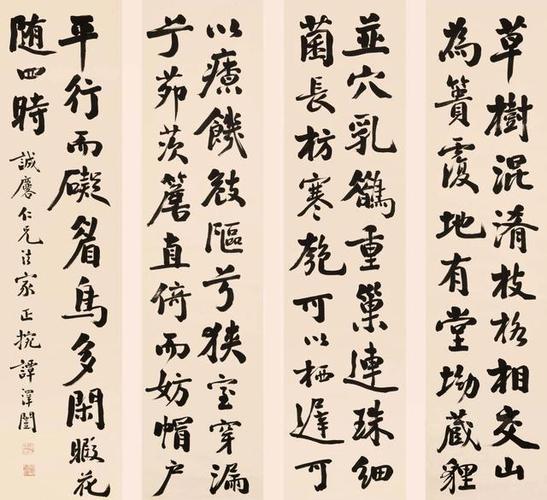 草樹混淆枝格相交山
為簣覆地有堂坳藏貍
並穴乳鵲重巢連珠細
菌長枋寒匏可以栖遲可
以療饑敧嶇兮狹室穿漏
兮茆茨簷直倚而妨帽户
平行而礙眉鳥多閑暇花
随四時
誠廑仁兄法家正捥 譚澤闓